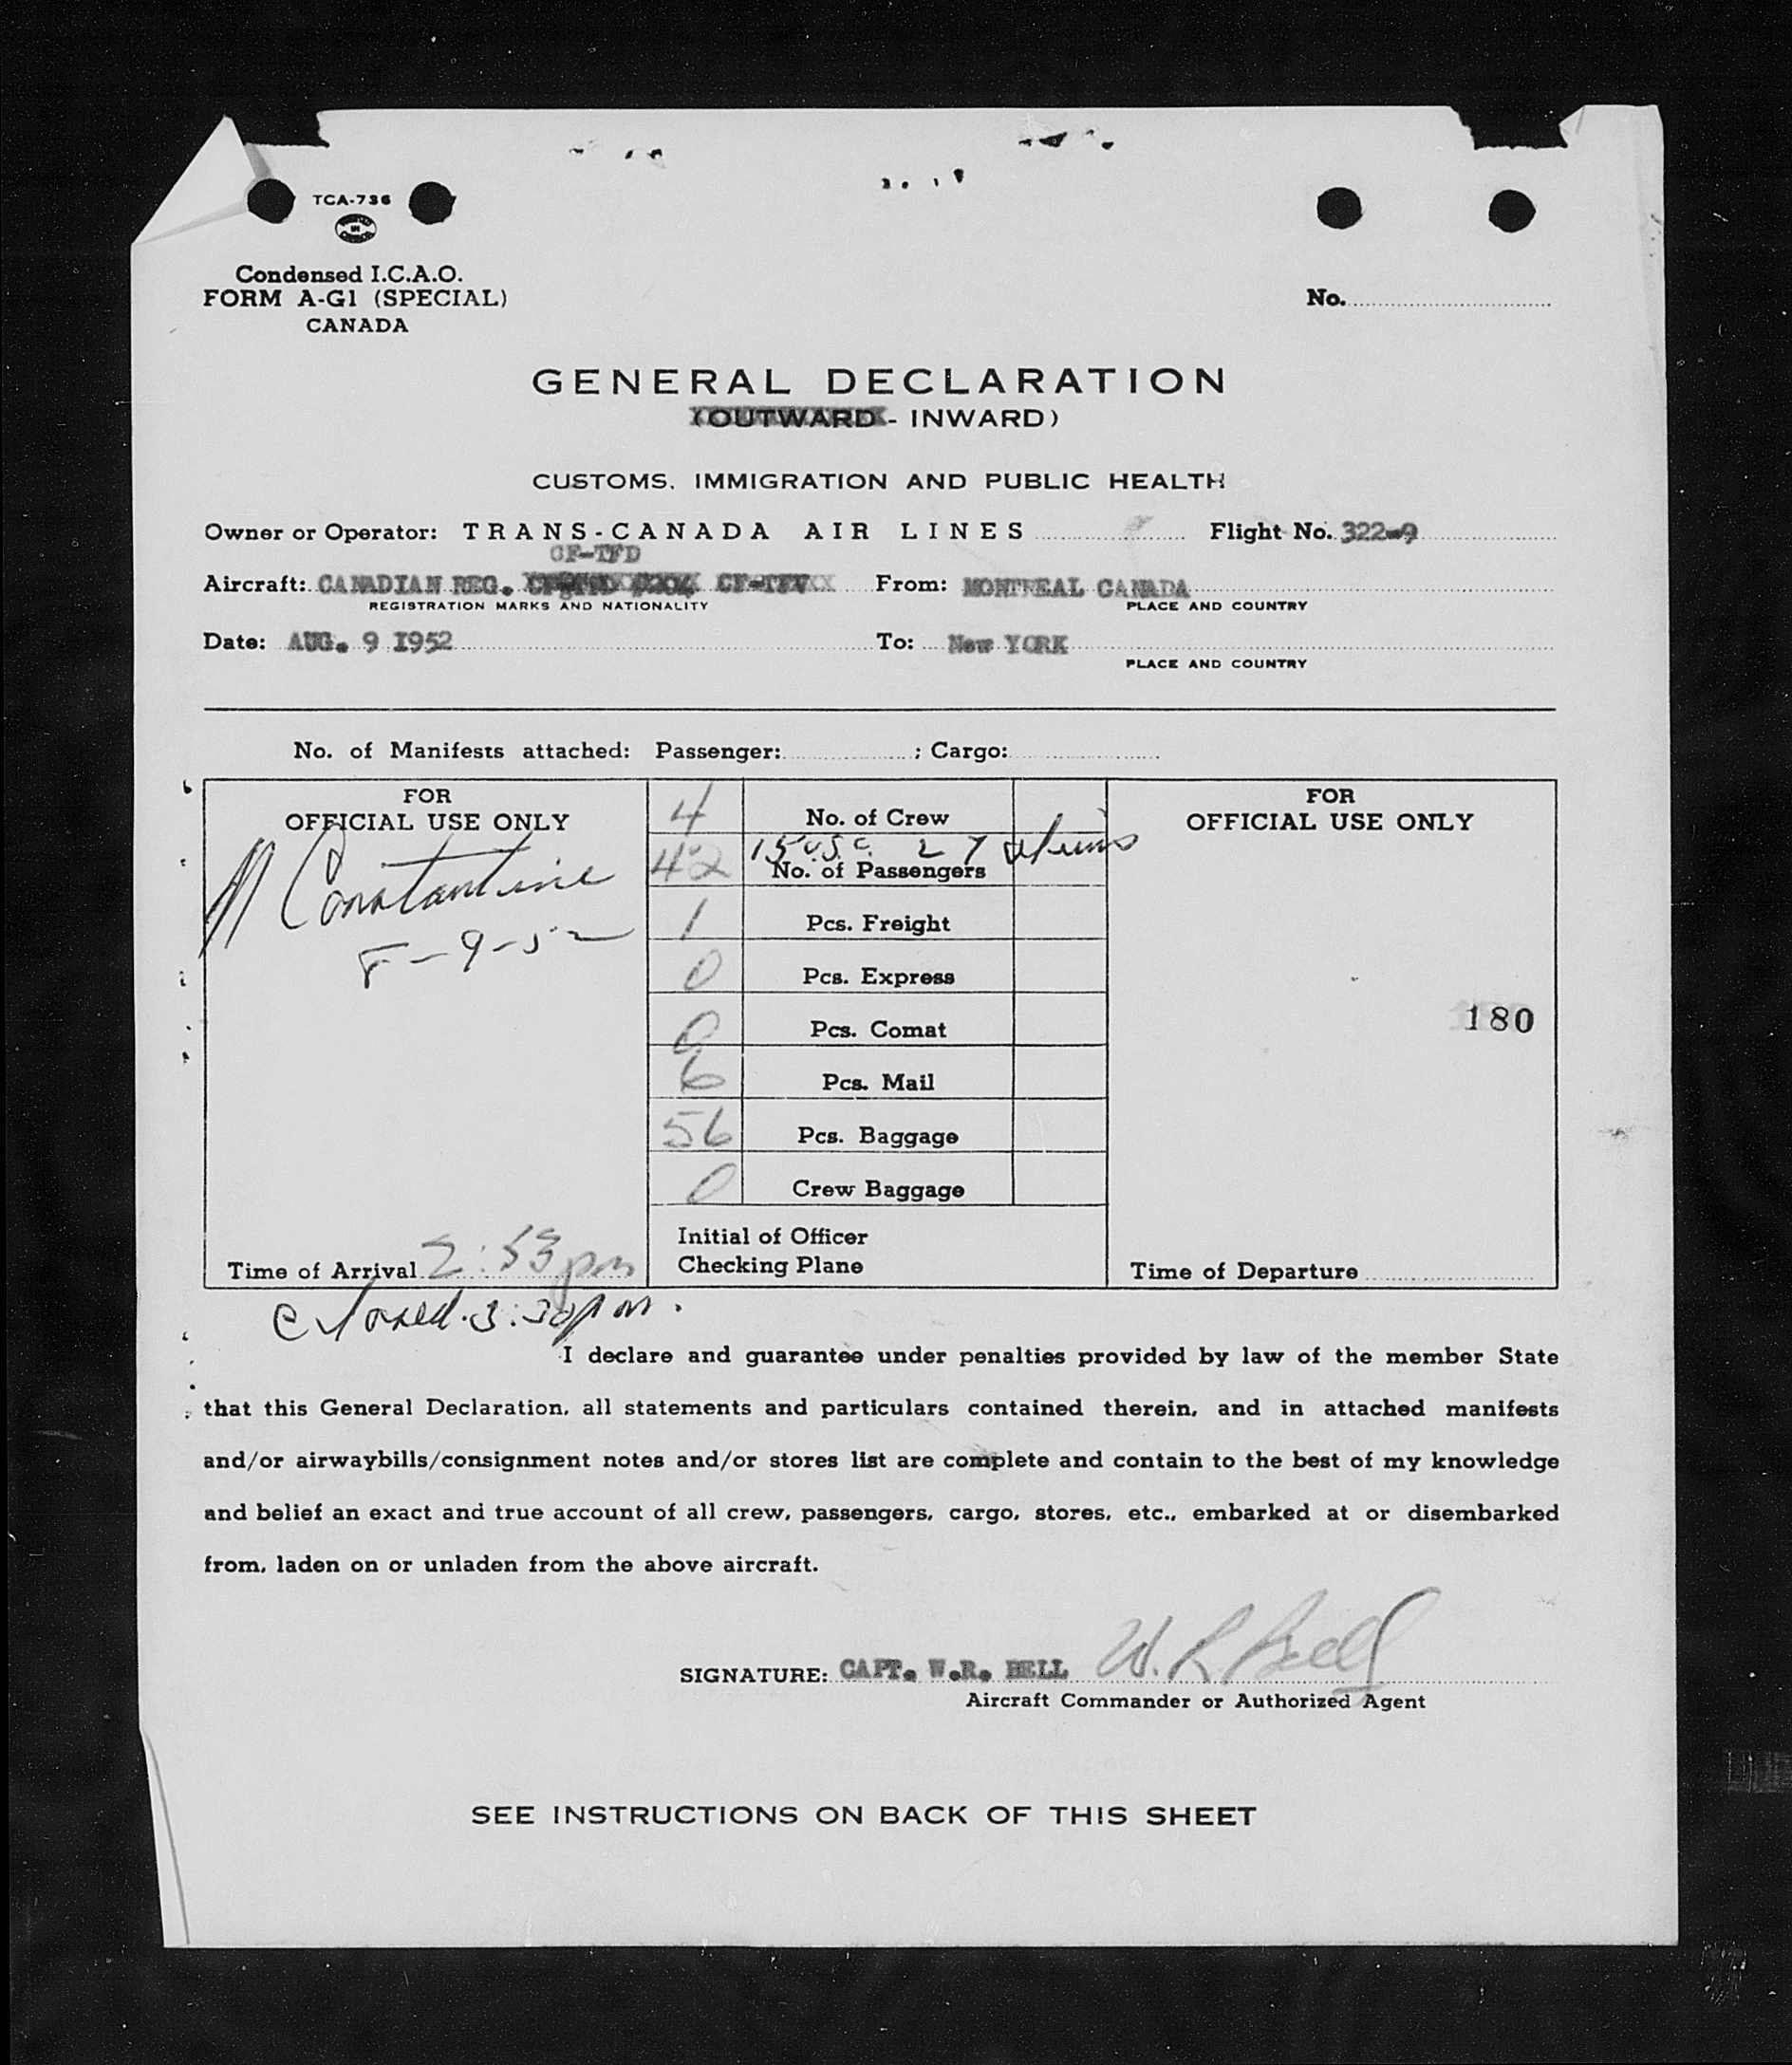 TCA-736
Condensed I.C.A.O.
FORM A-G1 (SPECIAL)
CANADA
No.
GENERAL DECLARATION
(OUTWARD - INWARD)
CUSTOMS, IMMIGRATION AND PUBLIC HEALTH
Owner or Operator: TRANS-CANADA AIR LINES Flight No. 322-9
CF-TFD
Aircraft: CANADIAN REG. CF-TFV From: MONTREAL CANADA
REGISTRATION MARKS AND NATIONALITY PLACE AND COUNTRY
Date: AUG. 9 1952 To: New YORK
PLACE AND COUNTRY
No. of Manifests attached: Passenger: ; Cargo:
FOR
OFFICIAL USE ONLY
Constantine
8-9-52
Time of Arrival 2:53 pm
closed. 3:30 pm.
4 No. of Crew
15 U.S.C. 27 aliens
42 No. of Passengers
1 Pcs. Freight
0 Pcs. Express
0 Pcs. Comat
6 Pcs. Mail
56 Pcs. Baggage
0 Crew Baggage
Initial of Officer
Checking Plane
FOR
OFFICIAL USE ONLY
180
Time of Departure
I declare and guarantee under penalties provided by law of the member State
that this General Declaration, all statements and particulars contained therein, and in attached manifests
and/or airwaybills/consignment notes and/or stores list are complete and contain to the best of my knowledge
and belief an exact and true account of all crew, passengers, cargo, stores, etc., embarked at or disembarked
from, laden on or unladen from the above aircraft.
SIGNATURE: CAPT. W.R. BELL W. R Bell
Aircraft Commander or Authorized Agent
SEE INSTRUCTIONS ON BACK OF THIS SHEET